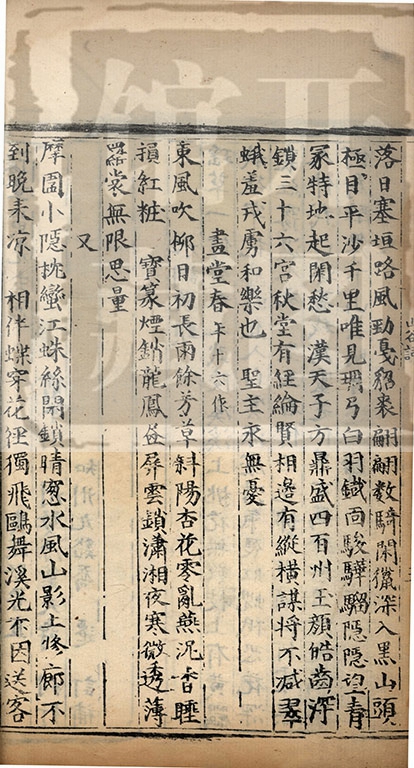 落日塞垣路風勁戛貂裘翩翩數騎閑獵深入黑山頭
極目平沙千里唯見琱弓白羽鐡面駿驊騮隱隱望青
冢特地起閑愁 漢天子方鼎盛四百州玉顔皓齒深
鎖三十六宮秋堂有經綸賢相邉有縱横謀將不减翠
蛾羞戎虜和樂也 聖主永無憂
畫堂春 年十六作
東風吹柳日初長雨餘芳草斜陽杏花零亂燕泥香睡
損紅粧 寳篆煙銷龍鳳畫屏雲鎖瀟湘夜寒微透薄
羅裳無限思量
又
摩圍小隱枕蠻江蛛絲閑鎖晴窓水風山影上脩廊不
到晚來凉 相伴蝶穿花徑獨飛鷗舞溪光不因送客